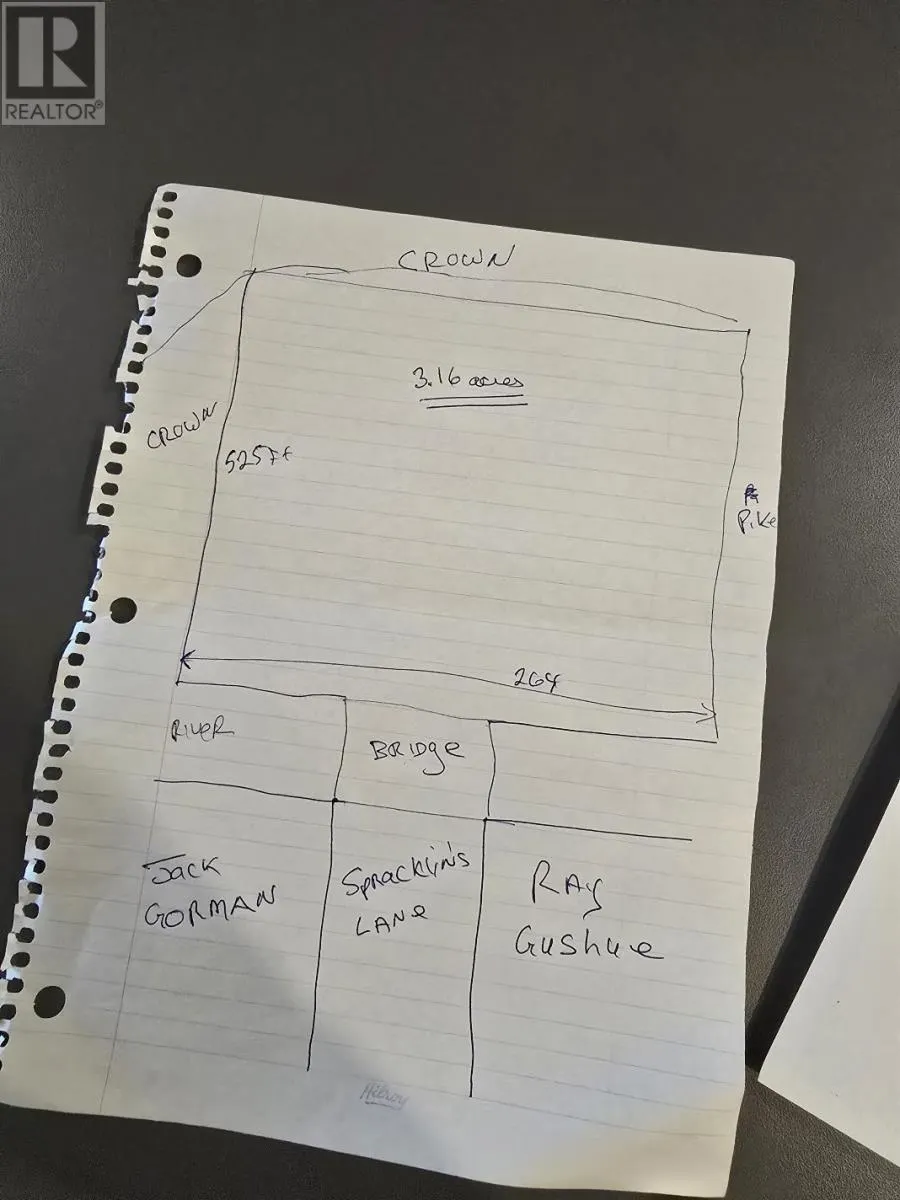 REALTOR®
CROWN
3.16 acres
CROWN
525 Ft
Pike
264
RIVER
BRIDge
JACK
GORMAN
Spracklin's
LANe
RAy
Gushue
Hilroy